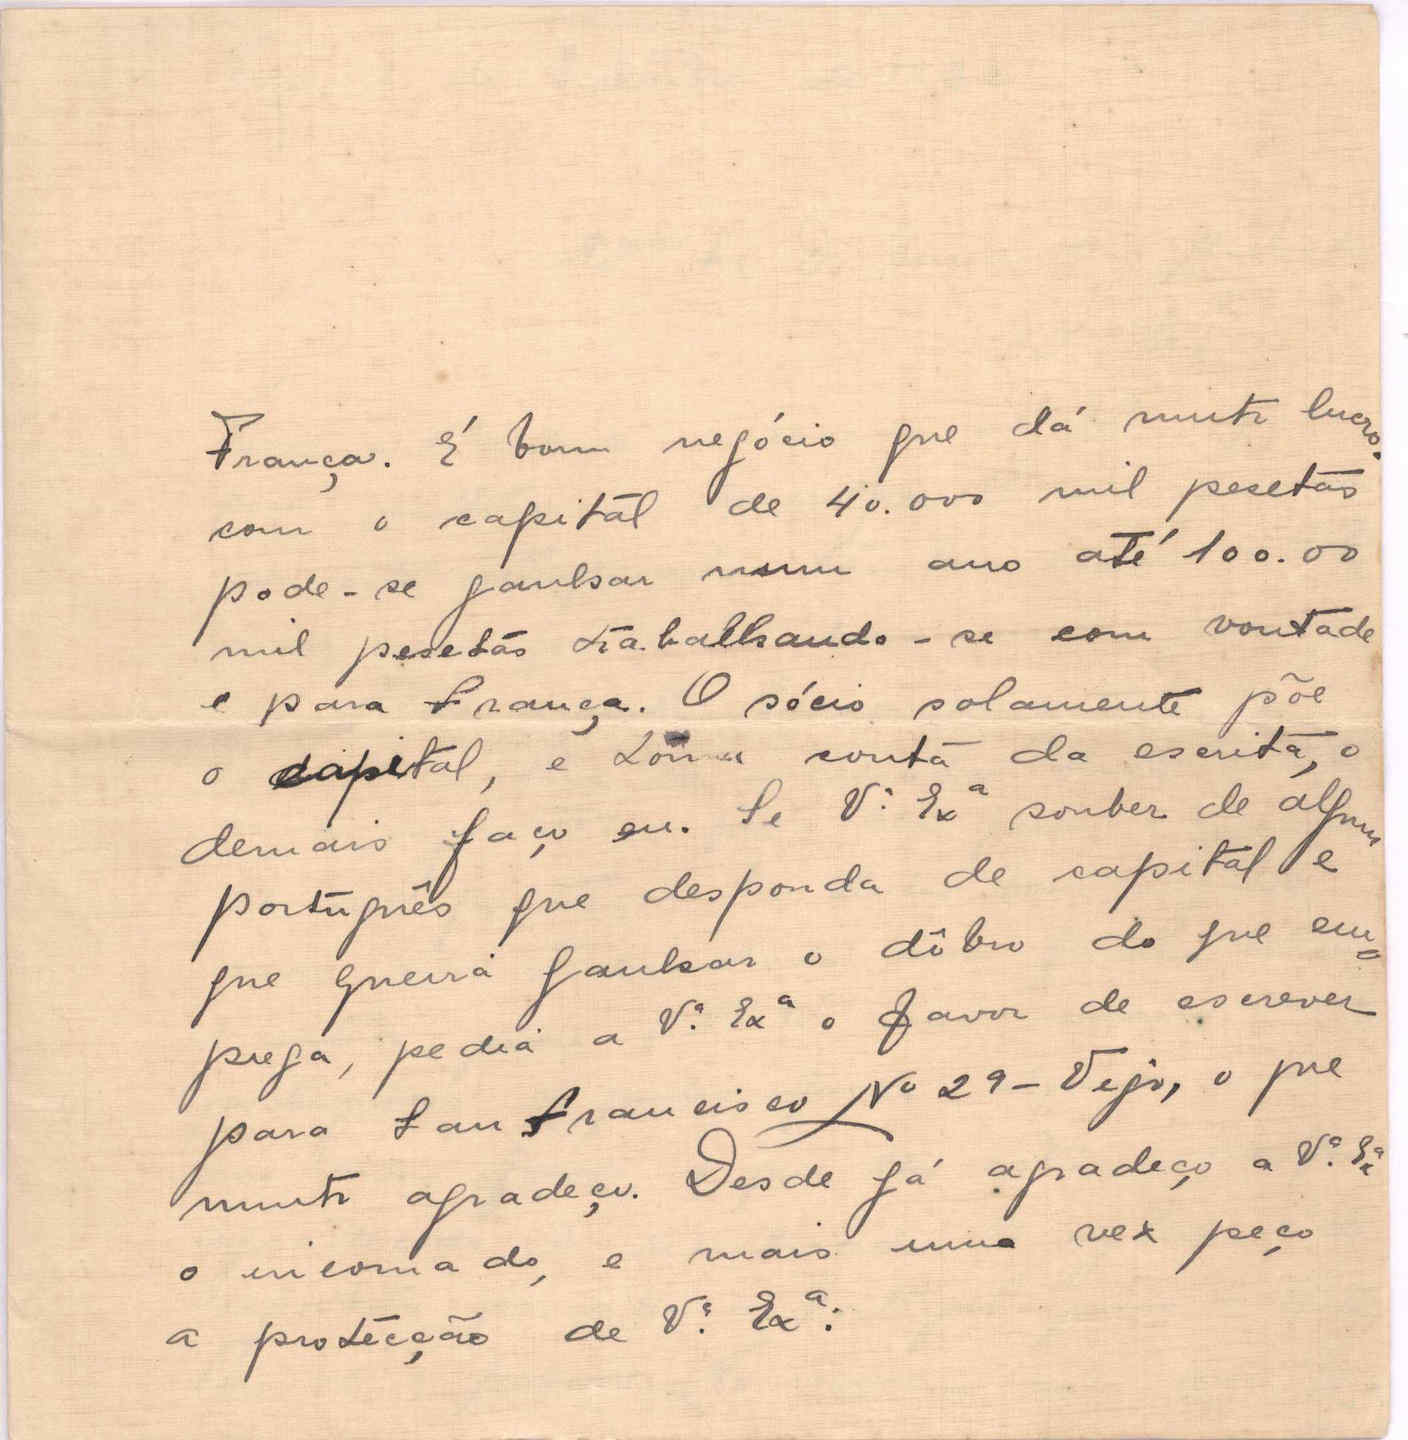 França. É bom negócio que dá muito lucro.
com o capital de 40.000 mil pesetas
pode-se ganhar num ano até 100.00
mil pesetas trabalhando-se com vontade
e para França. O sócio solamente põe
o capital, e toma conta da escrita, o
demais faço eu. Se V.ª Ex.ª souber de algum
português que desponda de capital e
que queira ganhar o dôbro do que em-
prega, pedia a V.ª Exª o favor de escrever
para San Francisco Nº 29 - Vejo, o que
muito agradeço. Desde já agradeço a V.ª Exª
o incomado, e mais uma vez peço
a protecção de V.ª Exª.